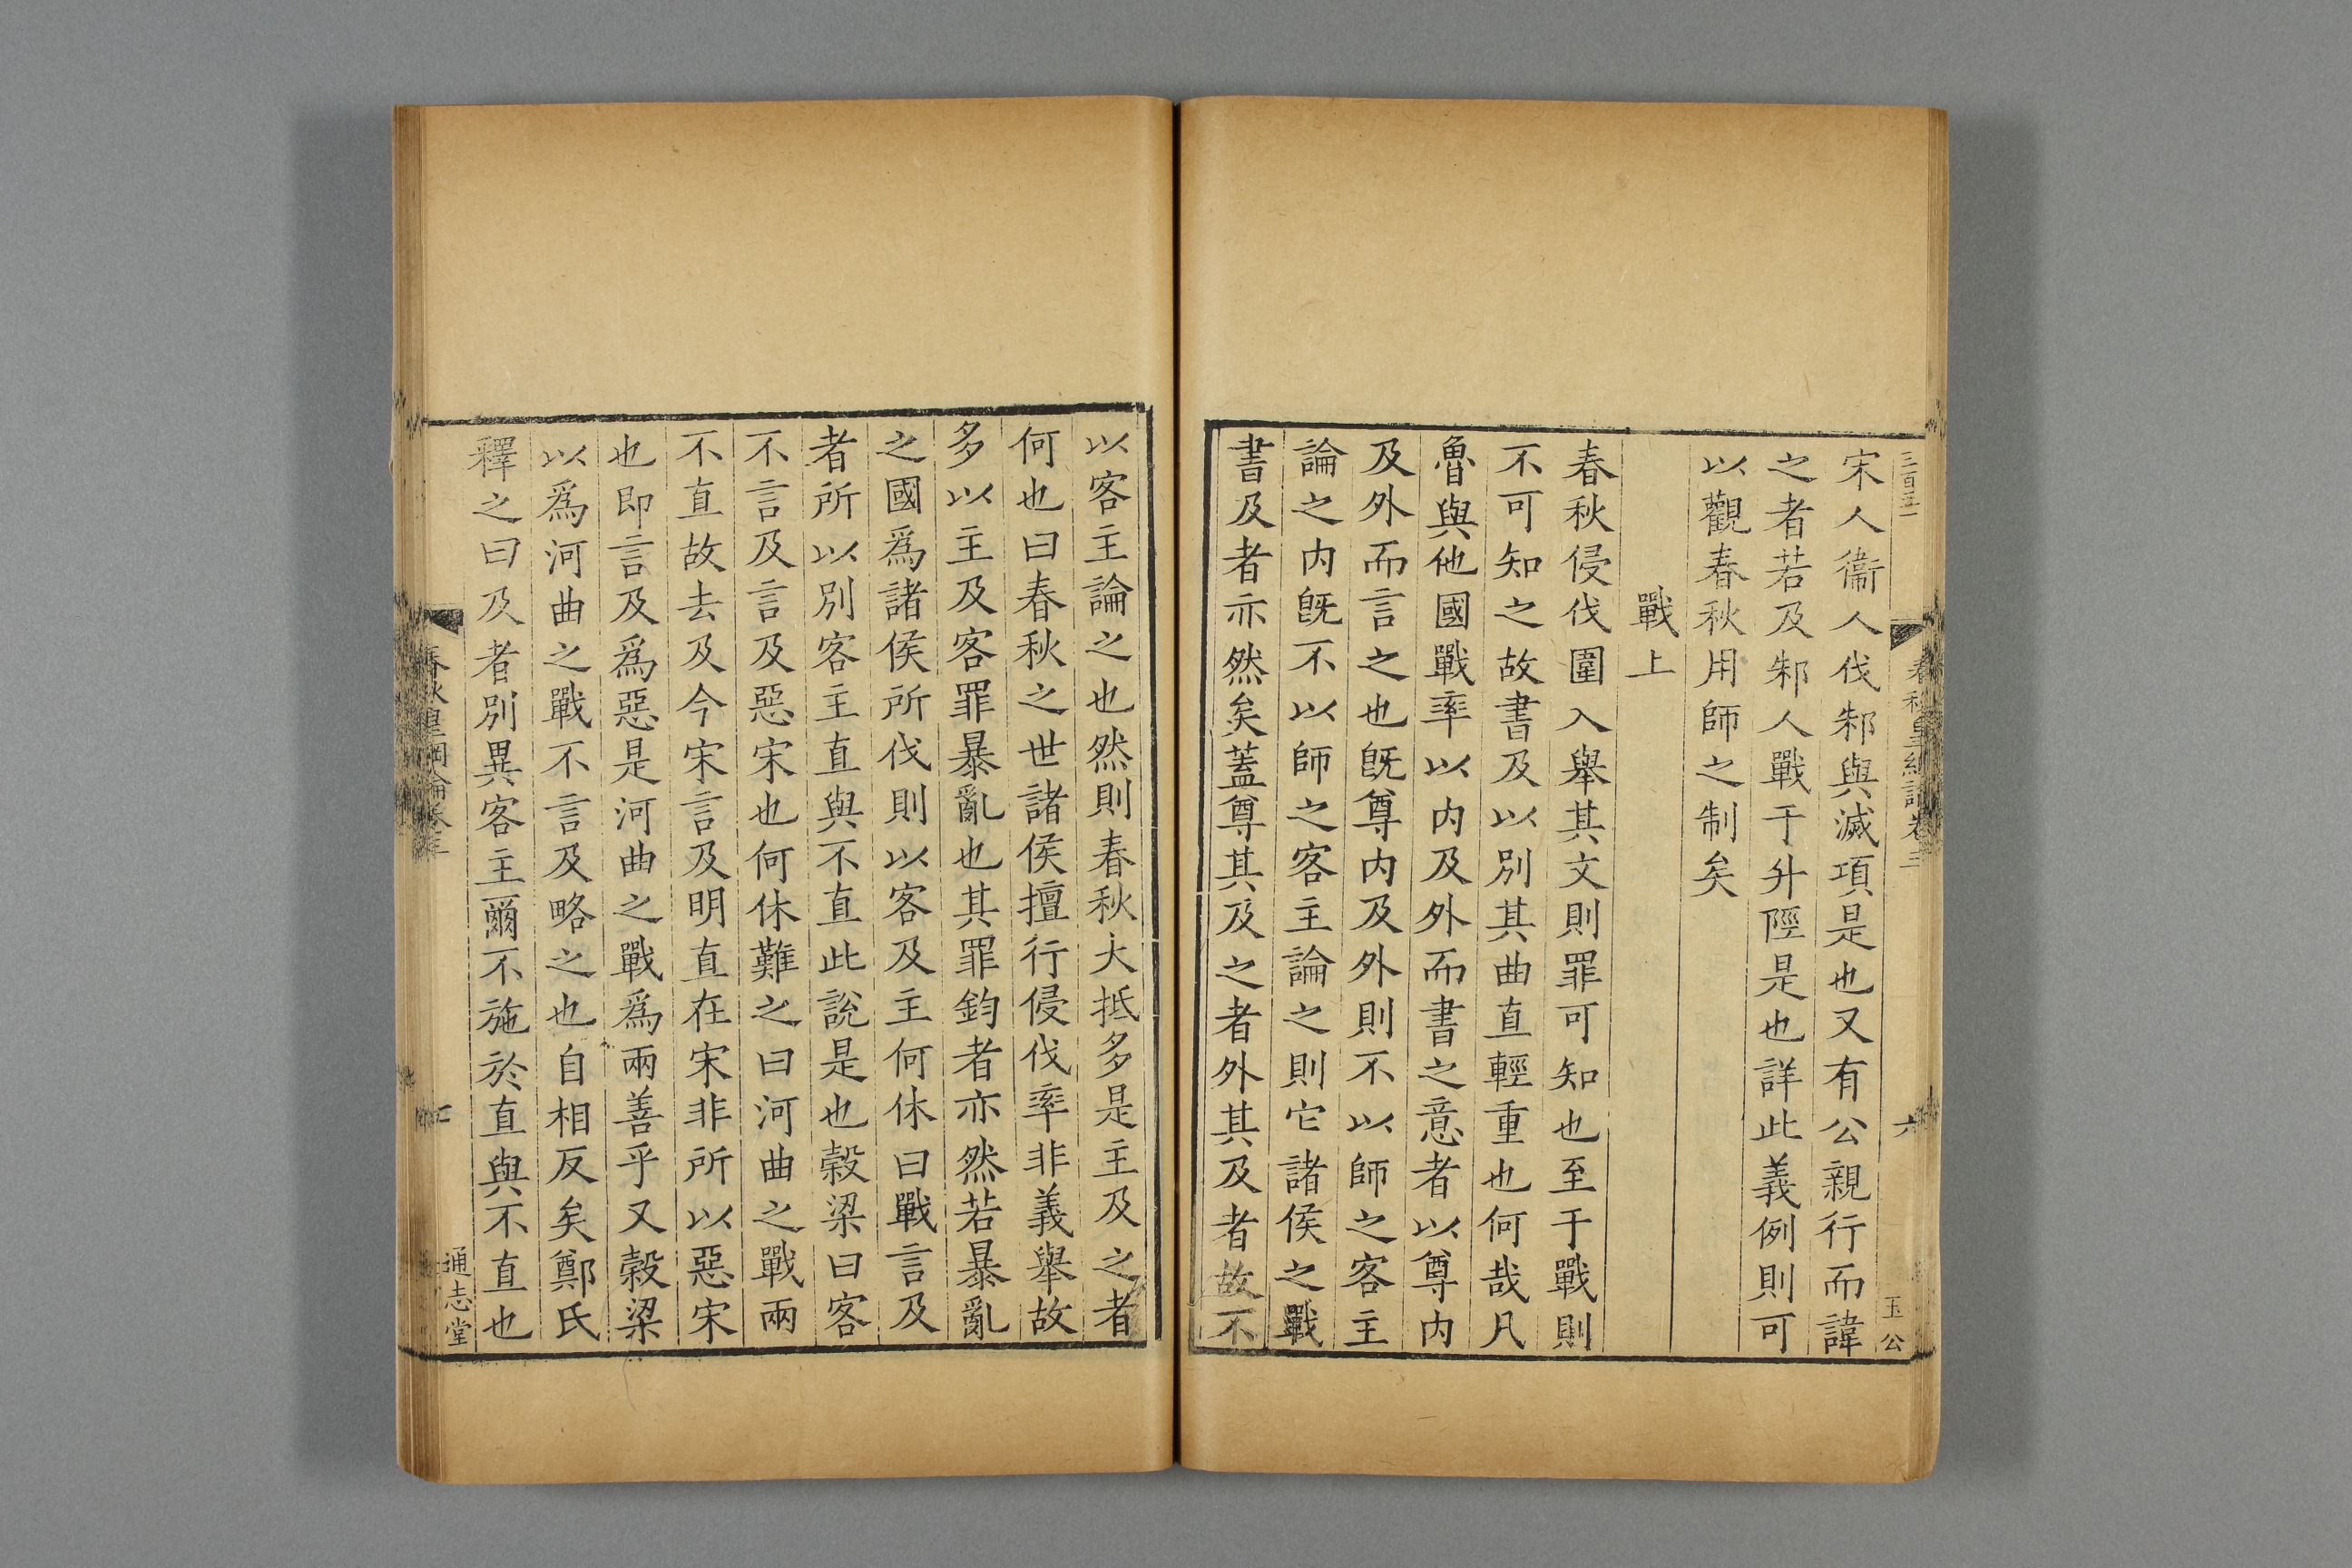 宋人衞人伐邾與滅項是也又有公親行而諱
之者若及邾人戰于升陘是也詳此義例則可
以觀春秋用師之制矣
戰上
春秋侵伐圍入舉其文則罪可知也至于戰則
不可知之故書及以別其曲直輕重也何哉凡
魯與他國戰率以内及外而書之意者以尊内
及外而言之也旣尊内及外則不以師之客主
論之内旣不以師之客主論之則它諸侯之戰
書及者亦然矣蓋尊其及之者外其及者故不
以客主論之也然則春秋大抵多是主及之者
何也曰春秋之世諸侯擅行侵伐率非義舉故
多以主及客罪暴亂也其罪鈞者亦然若暴亂
之國爲諸侯所伐則以客及主何休曰戰言及
者所以別客主直與不直此説是也榖梁曰客
不言及言及惡宋也何休難之曰河曲之戰兩
不直故去及今宋言及明直在宋非所以惡宋
也即言及爲惡是河曲之戰爲兩善乎又榖梁
以爲河曲之戰不言及略之也自相反矣鄭氏
釋之曰及者別異客主爾不施於直與不直也
春秋皇綱論卷三
六
玉公
春秋皇綱論卷三
七
通志堂